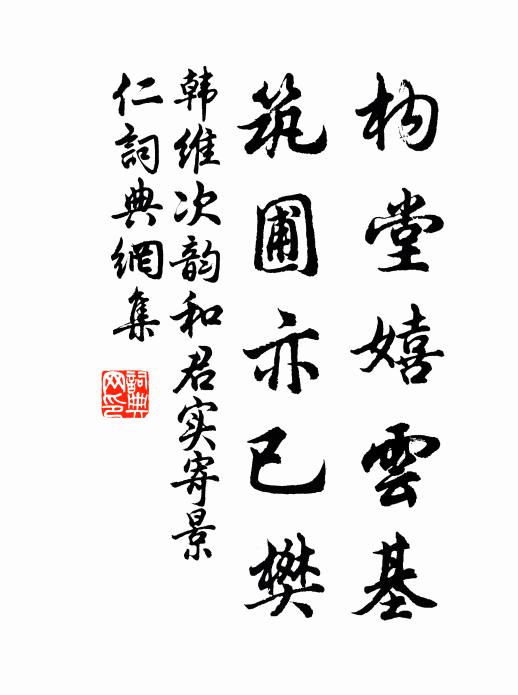 构堂嬉雲基
筑圃亦已樊
韩维次韵和君实寄景
仁詞典網集
詞典网印